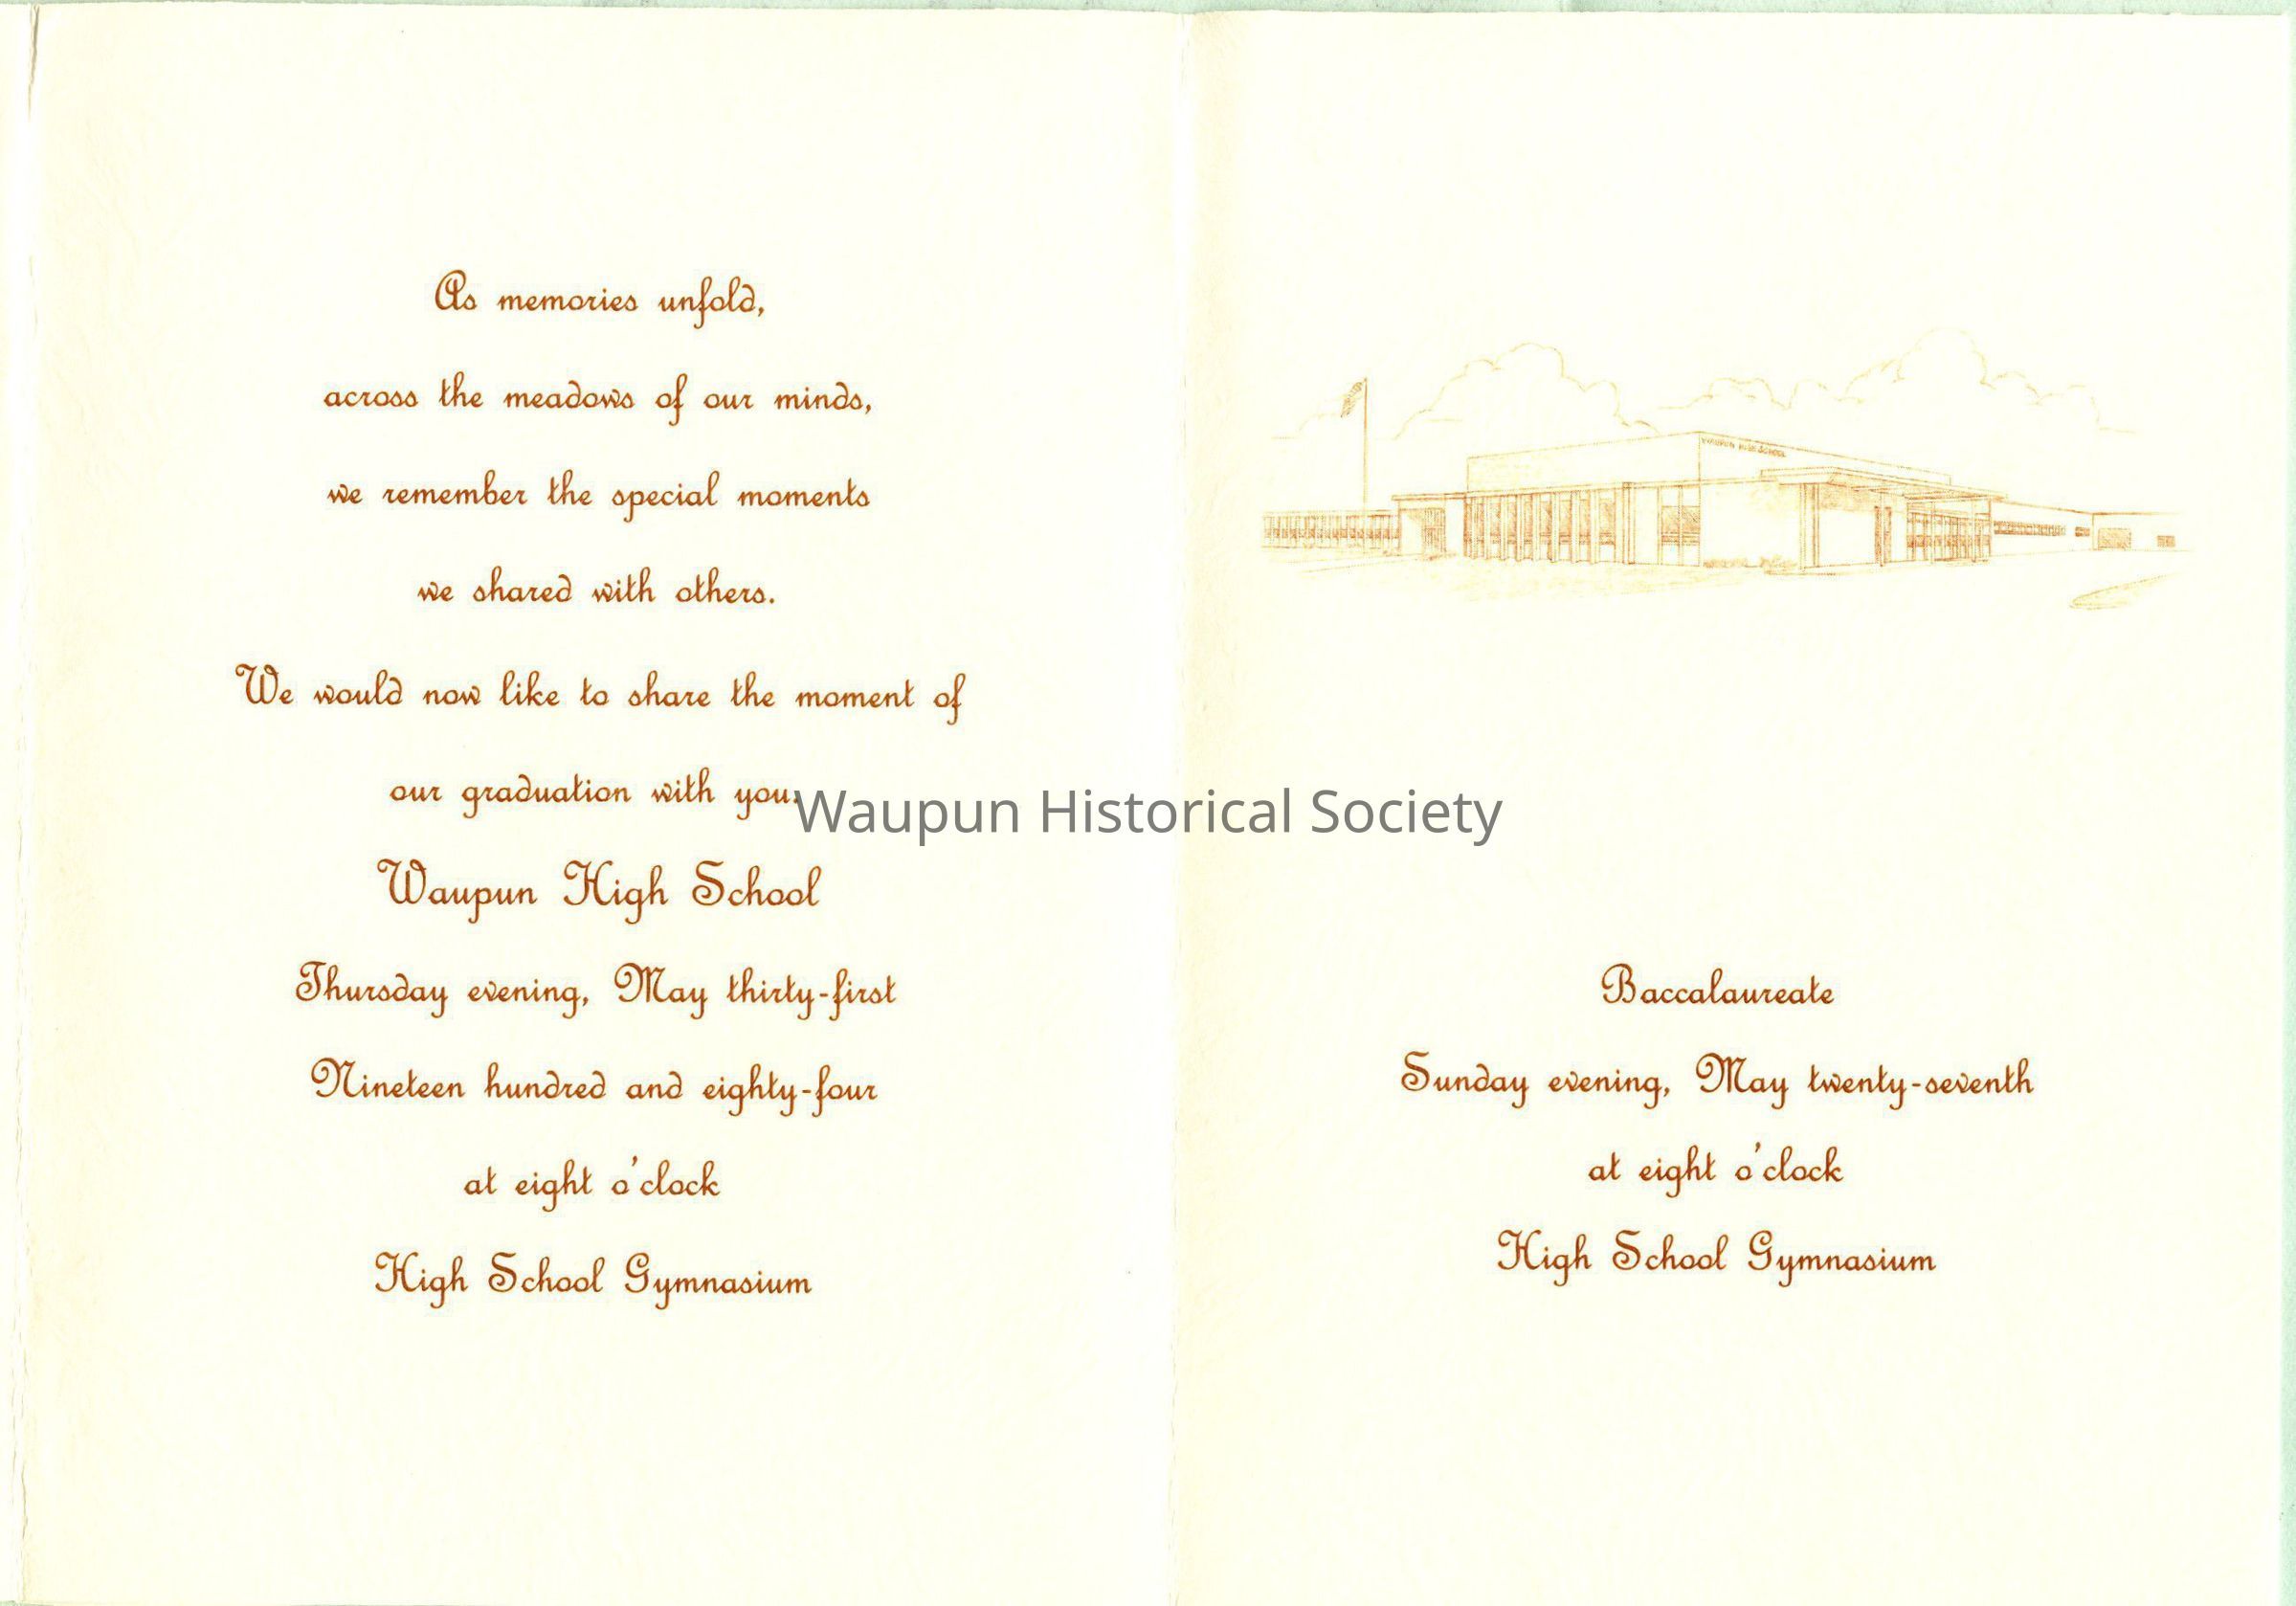 As memories unfold,
across the meadows of our minds,
we remember the special moments
we shared with others.
We would now like to share the moment of
our graduation with you.
Waupun High School
Thursday evening, May thirty-first
Nineteen hundred and eighty-four
at eight o'clock
High School Gymnasium
Waupun Historical Society
WAUPUN HIGH SCHOOL
Baccalaureate
Sunday evening, May twenty-seventh
at eight o'clock
High School Gymnasium